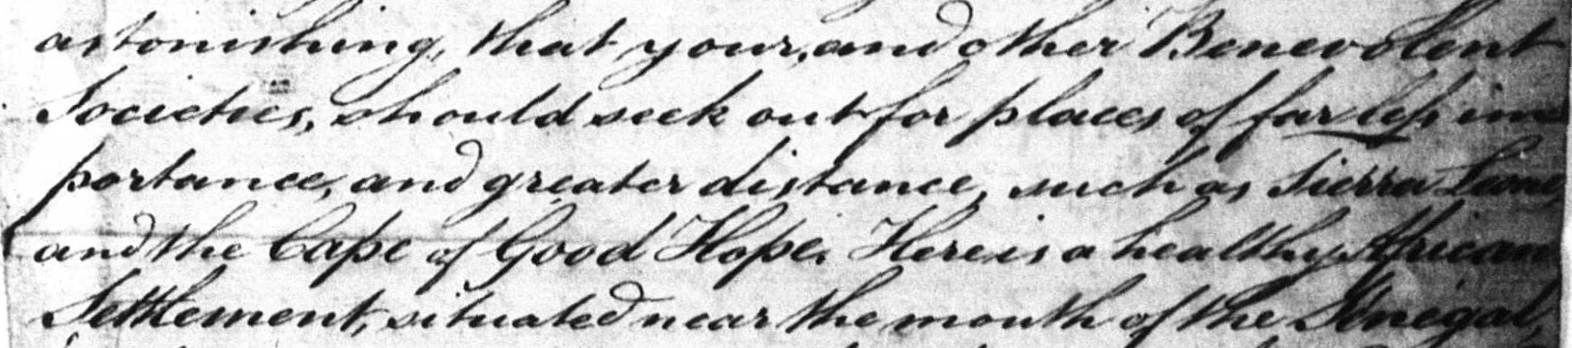 astonishing, that your, and other Benevolent
Societies, should seek out for places of far less im
portance, and greater distance, such as Sierra Leone,
and the Cape of Good Hope. Here is a healthy African
Settlement, situated near the mouth of the Senegal,